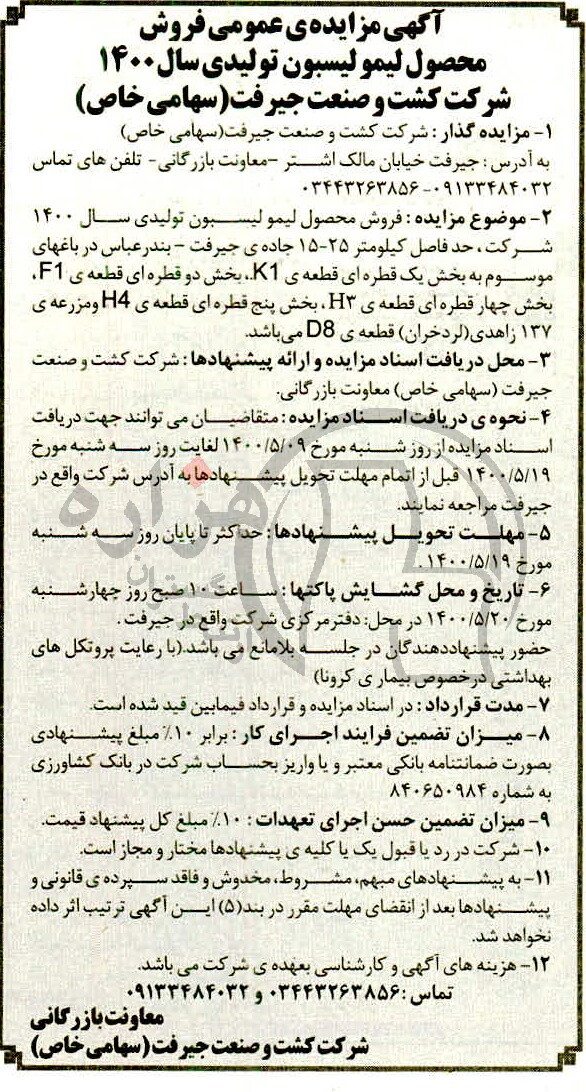 آگهی مزایده‌ی عمومی فروش
محصول لیمو لیسبون تولیدی سال ۱۴۰۰
شرکت کشت و صنعت جیرفت (سهامی خاص)
۱- مزایده گذار : شرکت کشت و صنعت جیرفت(سهامی خاص)
به آدرس : جیرفت خیابان مالک اشتر -معاونت بازرگانی- تلفن های تماس
۰۳۴۴۳۲۶۳۸۵۶-۰۹۱۳۳۴۸۴۰۳۲
۲- موضوع مزایده : فروش محصول لیمو لیسبون تولیدی سال ۱۴۰۰
شرکت ، حد فاصل کیلومتر ۲۵-۱۵ جاده ی جیرفت - بندرعباس در باغهای
موسوم به بخش یک قطره ای قطعه ی K1، بخش دو قطره ای قطعه ی F1،
بخش چهار قطره ای قطعه ی H۳ ، بخش پنج قطره ای قطعه ی H4 ومزرعه ی
۱۳۷ زاهدی(لردخران) قطعه ی D8 می‌باشد.
۳- محل دریافت اسناد مزایده و ارائه پیشنهادها : شرکت کشت و صنعت
جیرفت (سهامی خاص) معاونت بازرگانی.
۴- نحوه ی دریافت اسناد مزایده : متقاضیان می توانند جهت دریافت
اسناد مزایده از روز شنبه مورخ ۱۴۰۰/۵/۰۹ لغایت روز سه شنبه مورخ
۱۴۰۰/۵/۱۹ قبل از اتمام مهلت تحویل پیشنهادها به آدرس شرکت واقع در
جیرفت مراجعه نمایند.
۵- مهلت تحویل پیشنهادها : حداکثر تا پایان روز سه شنبه
مورخ ۱۴۰۰/۵/۱۹ .
۶- تاریخ و محل گشایش پاکتها : ساعت ۱۰ صبح روز چهارشنبه
مورخ ۱۴۰۰/۵/۲۰ در محل: دفتر مرکزی شرکت واقع در جیرفت .
حضور پیشنهاددهندگان در جلسه بلامانع می باشد.(با رعایت پروتکل های
بهداشتی درخصوص بیماری کرونا)
۷- مدت قرارداد : در اسناد مزایده و قرارداد فیمابین قید شده است.
۸- میزان تضمین فرایند اجرای کار : برابر ۱۰٪ مبلغ پیشنهادی
بصورت ضمانتنامه بانکی معتبر و یا واریز بحساب شرکت در بانک کشاورزی
به شماره ۸۴۰۶۵۰۹۸۴
۹- میزان تضمین حسن اجرای تعهدات : ۱۰٪ مبلغ کل پیشنهاد قیمت.
۱۰- شرکت در رد یا قبول یک یا کلیه ی پیشنهادها مختار و مجاز است.
۱۱- به پیشنهادهای مبهم، مشروط، مخدوش و فاقد سپرده ی قانونی و
پیشنهادها بعد از انقضای مهلت مقرر در بند(۵) این آگهی ترتیب اثر داده
نخواهد شد.
۱۲- هزینه های آگهی و کارشناسی بعهده ی شرکت می باشد.
تماس :۰۳۴۴۳۲۶۳۸۵۶ و ۰۹۱۳۳۴۸۴۰۳۲
معاونت بازرگانی
شرکت کشت و صنعت جیرفت (سهامی خاص)
هزاره